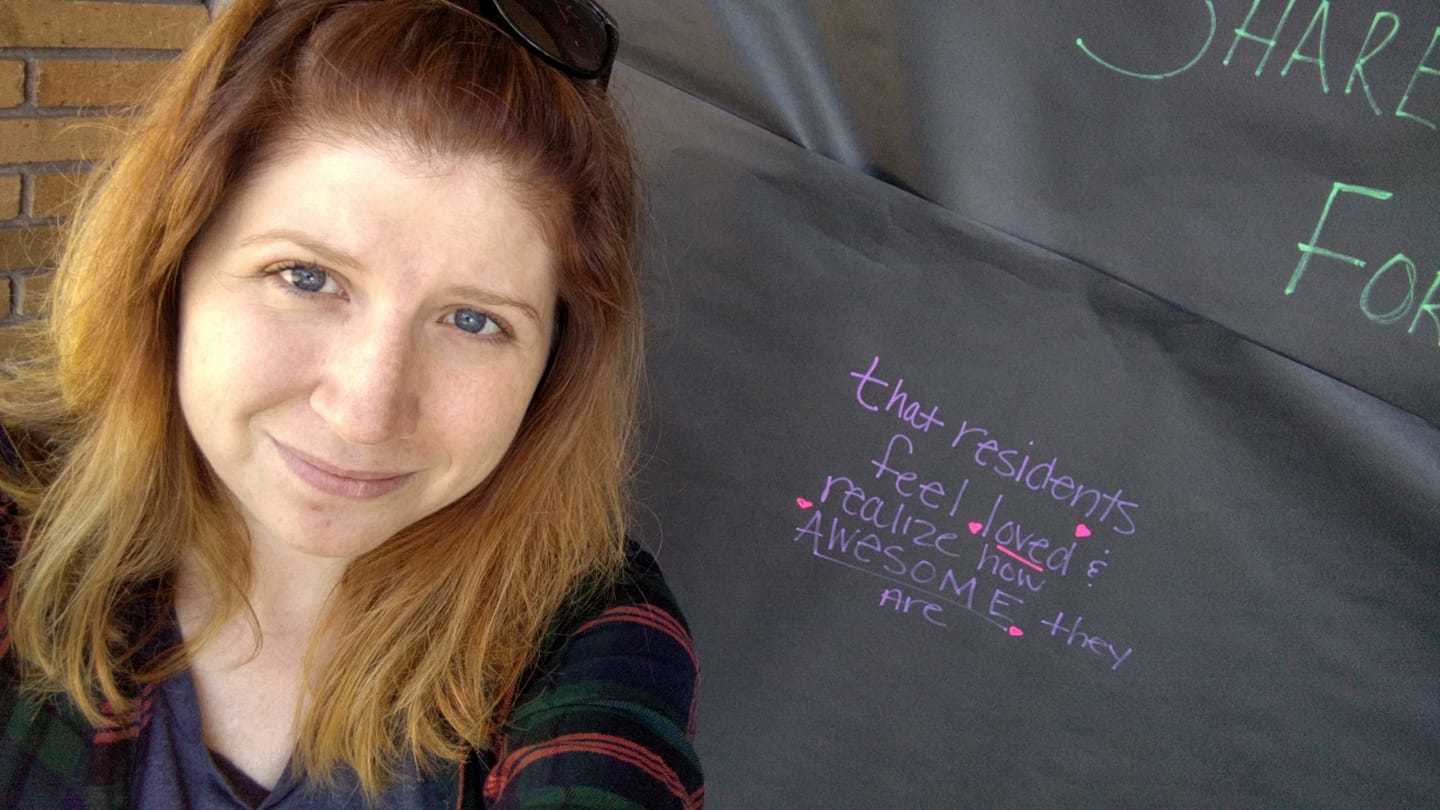 SHARE
FOR
that residents
feel loved &
realize how
AWESOME they
are